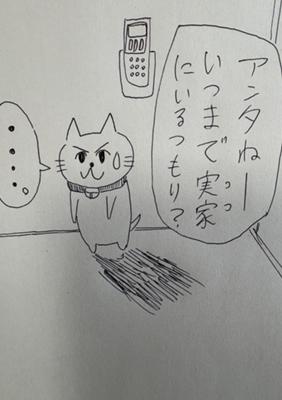 アンタねー
いつまで実家
にいるつもり?
・・・・